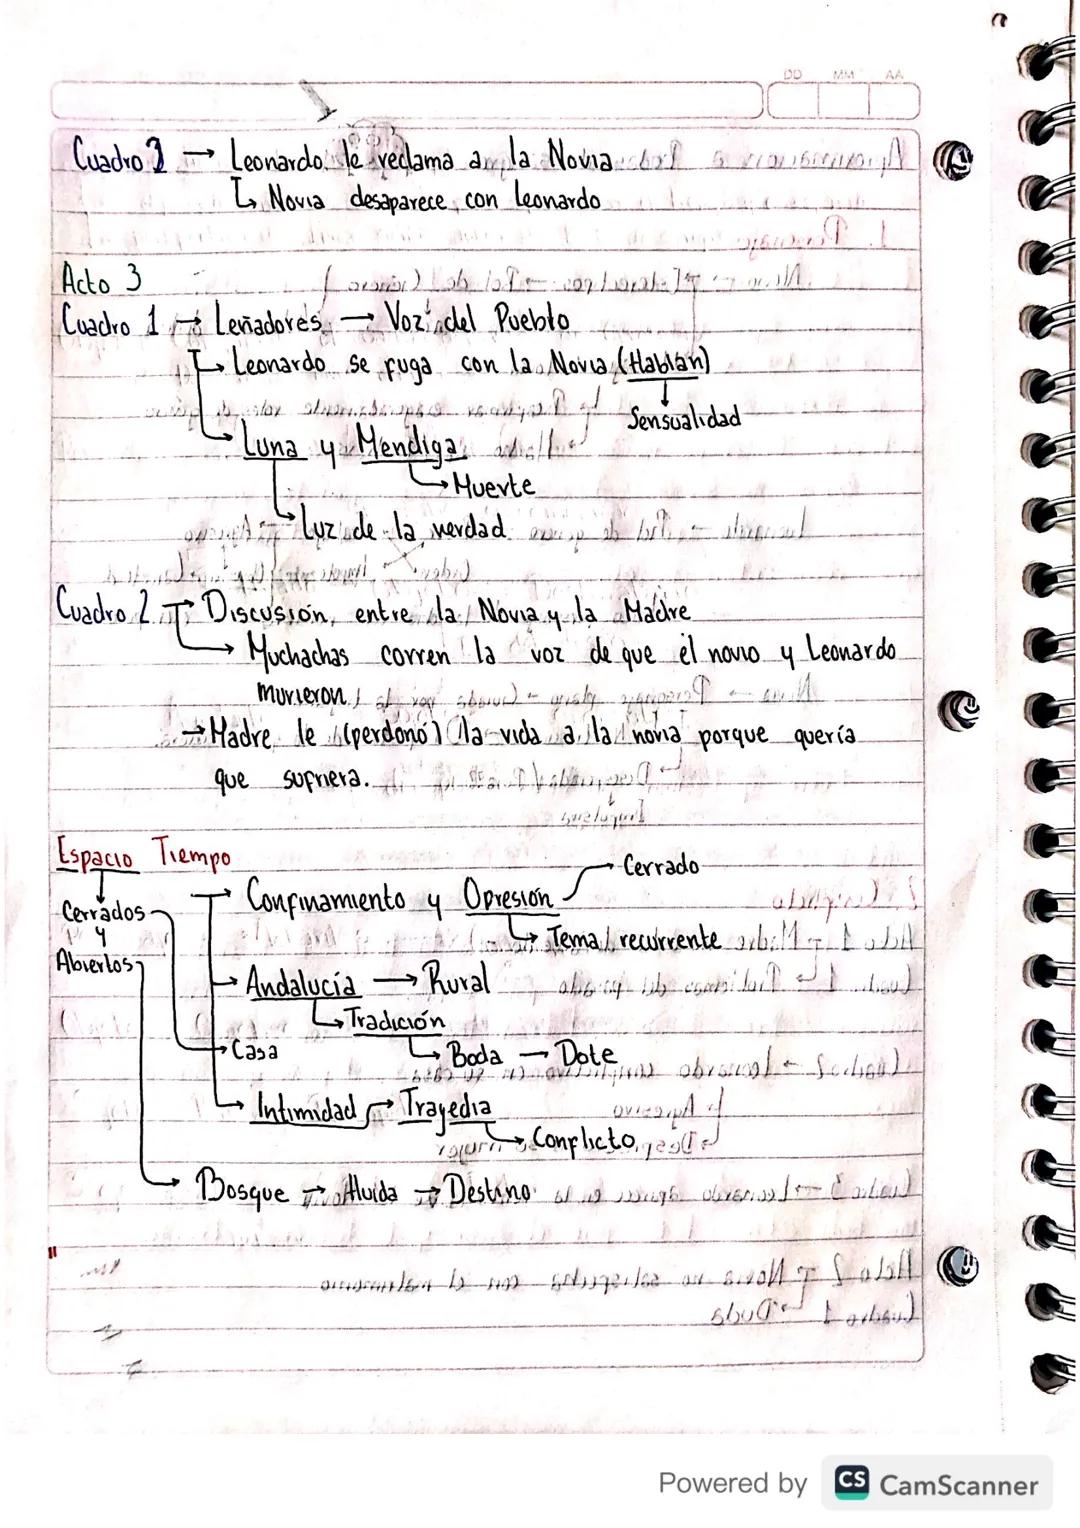 DD MM AA
Cuadro 2 → Leonardo le reclama a la Novia
↳ Novia desaparece con Leonardo
Acto 3
Cuadro 1 → Leñadores → Voz del Pueblo
↳ Leonardo se fuga con la Novia (Hablan)
Sensualidad
↳ Luna y Mendiga
↳ Muerte
↳ Luz de la verdad
Cuadro 2 → Discusión entre la Novia y la Madre
↳ Muchachas corren la voz de que el novio y Leonardo
murieron
→ Madre le (perdonó) la vida a la novia porque quería
que sufriera.
Espacio Tiempo
→ Cerrado
Cerrados → Confinamiento y Opresión
y ↳ Tema recurrente
Abiertos
→ Andalucía → Rural
↳ Tradición
→ Casa ↳ Boda → Dote
↳ Intimidad → Tragedia
↳ Conflicto
→ Bosque → Huida → Destino
Powered by CS CamScanner